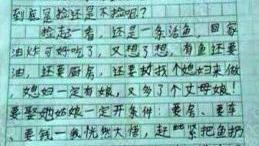 到底是捡还是不捡呢？
捡起一看，还是一条活鱼，回家
油炸可好吃了，又想了想，有鱼还要
油，还要厨房，还要找个媳妇来做
，媳妇一定有娘，又多了个丈母娘！
要娶她姑娘一定开条件：要房、要车
、要钱一我恍然大悟，赶紧把鱼扔